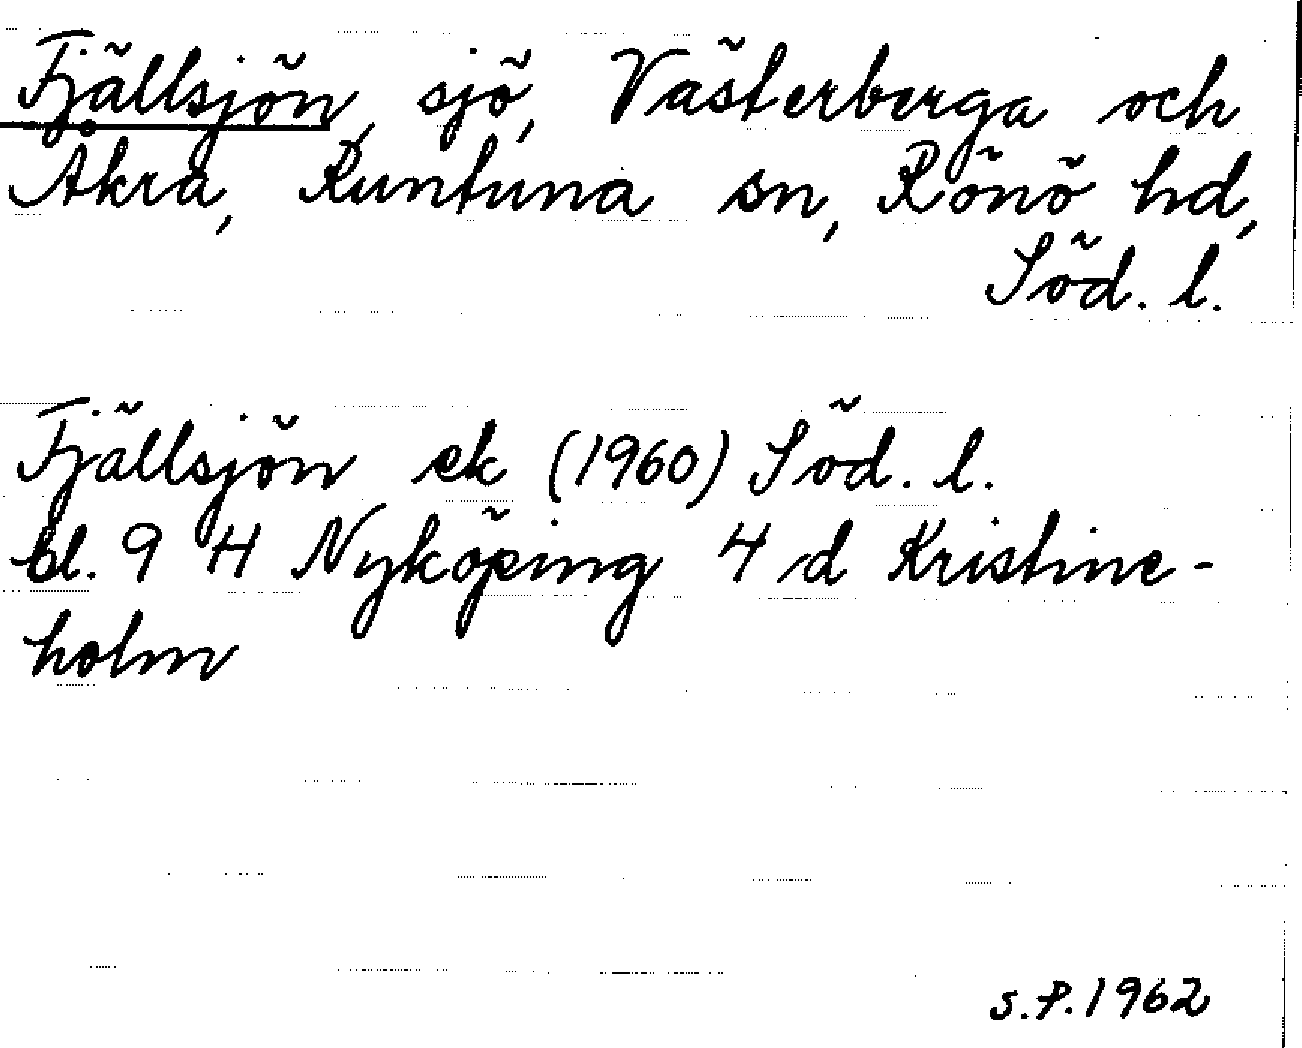 Fjällsjön, sjö, Västerberga och
Åkra, Runtuna sn, Rönö hd,
Söd. l.
Fjällsjön ek (1960) Söd. l.
bl. 9 H Nyköping 4 d Kristine-
holm
S.P. 1962